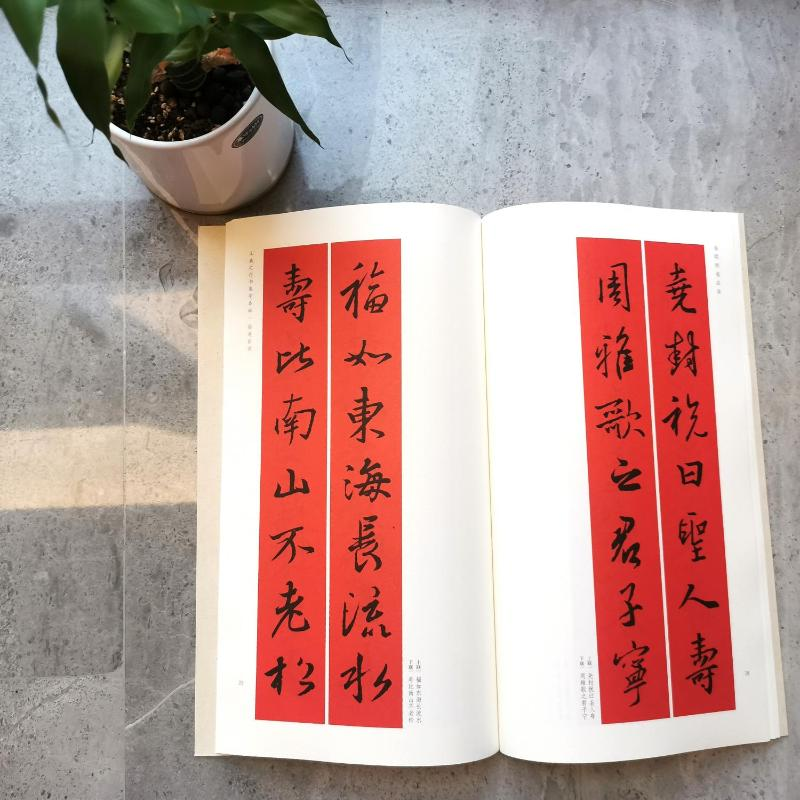 堯封祝曰聖人壽
周雅歌之君子寧
上联 尧封祝曰圣人寿
下联 周雅歌之君子宁
福如東海長流水
壽比南山不老松
上联 福如东海长流水
下联 寿比南山不老松